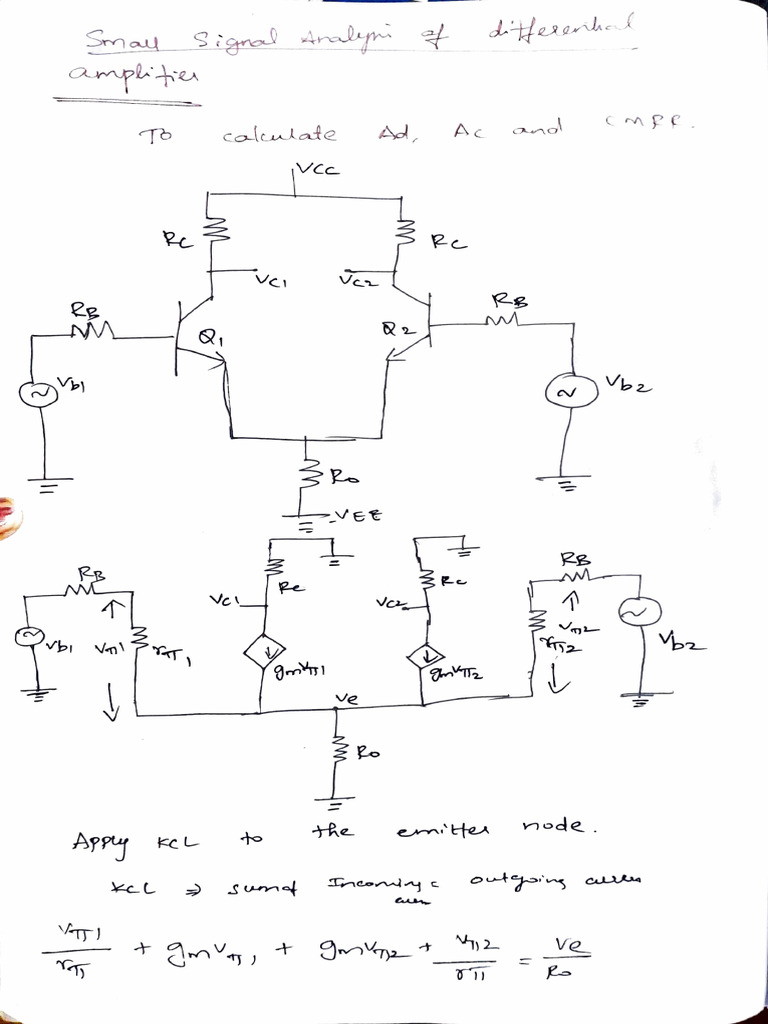 Small Signal Analysis of differential
amplifier
To calculate Ad, Ac and CMRR.
VCC
RC RC
VC1 VC2
RB RB
Q1 Q2
Vb1 Vb2
Ro
-VEE
RB RB
RC RC
VC1 VC2
Vb1 Vπ1 rπ1 gmVπ1 gmVπ2 rπ2 Vπ2 Vb2
Ve
Ro
Apply KCL to the emitter node.
KCL ⇒ sum of Incoming = outgoing
Vπ1/rπ1 + gmVπ1 + gmVπ2 + Vπ2/rπ = Ve/Ro